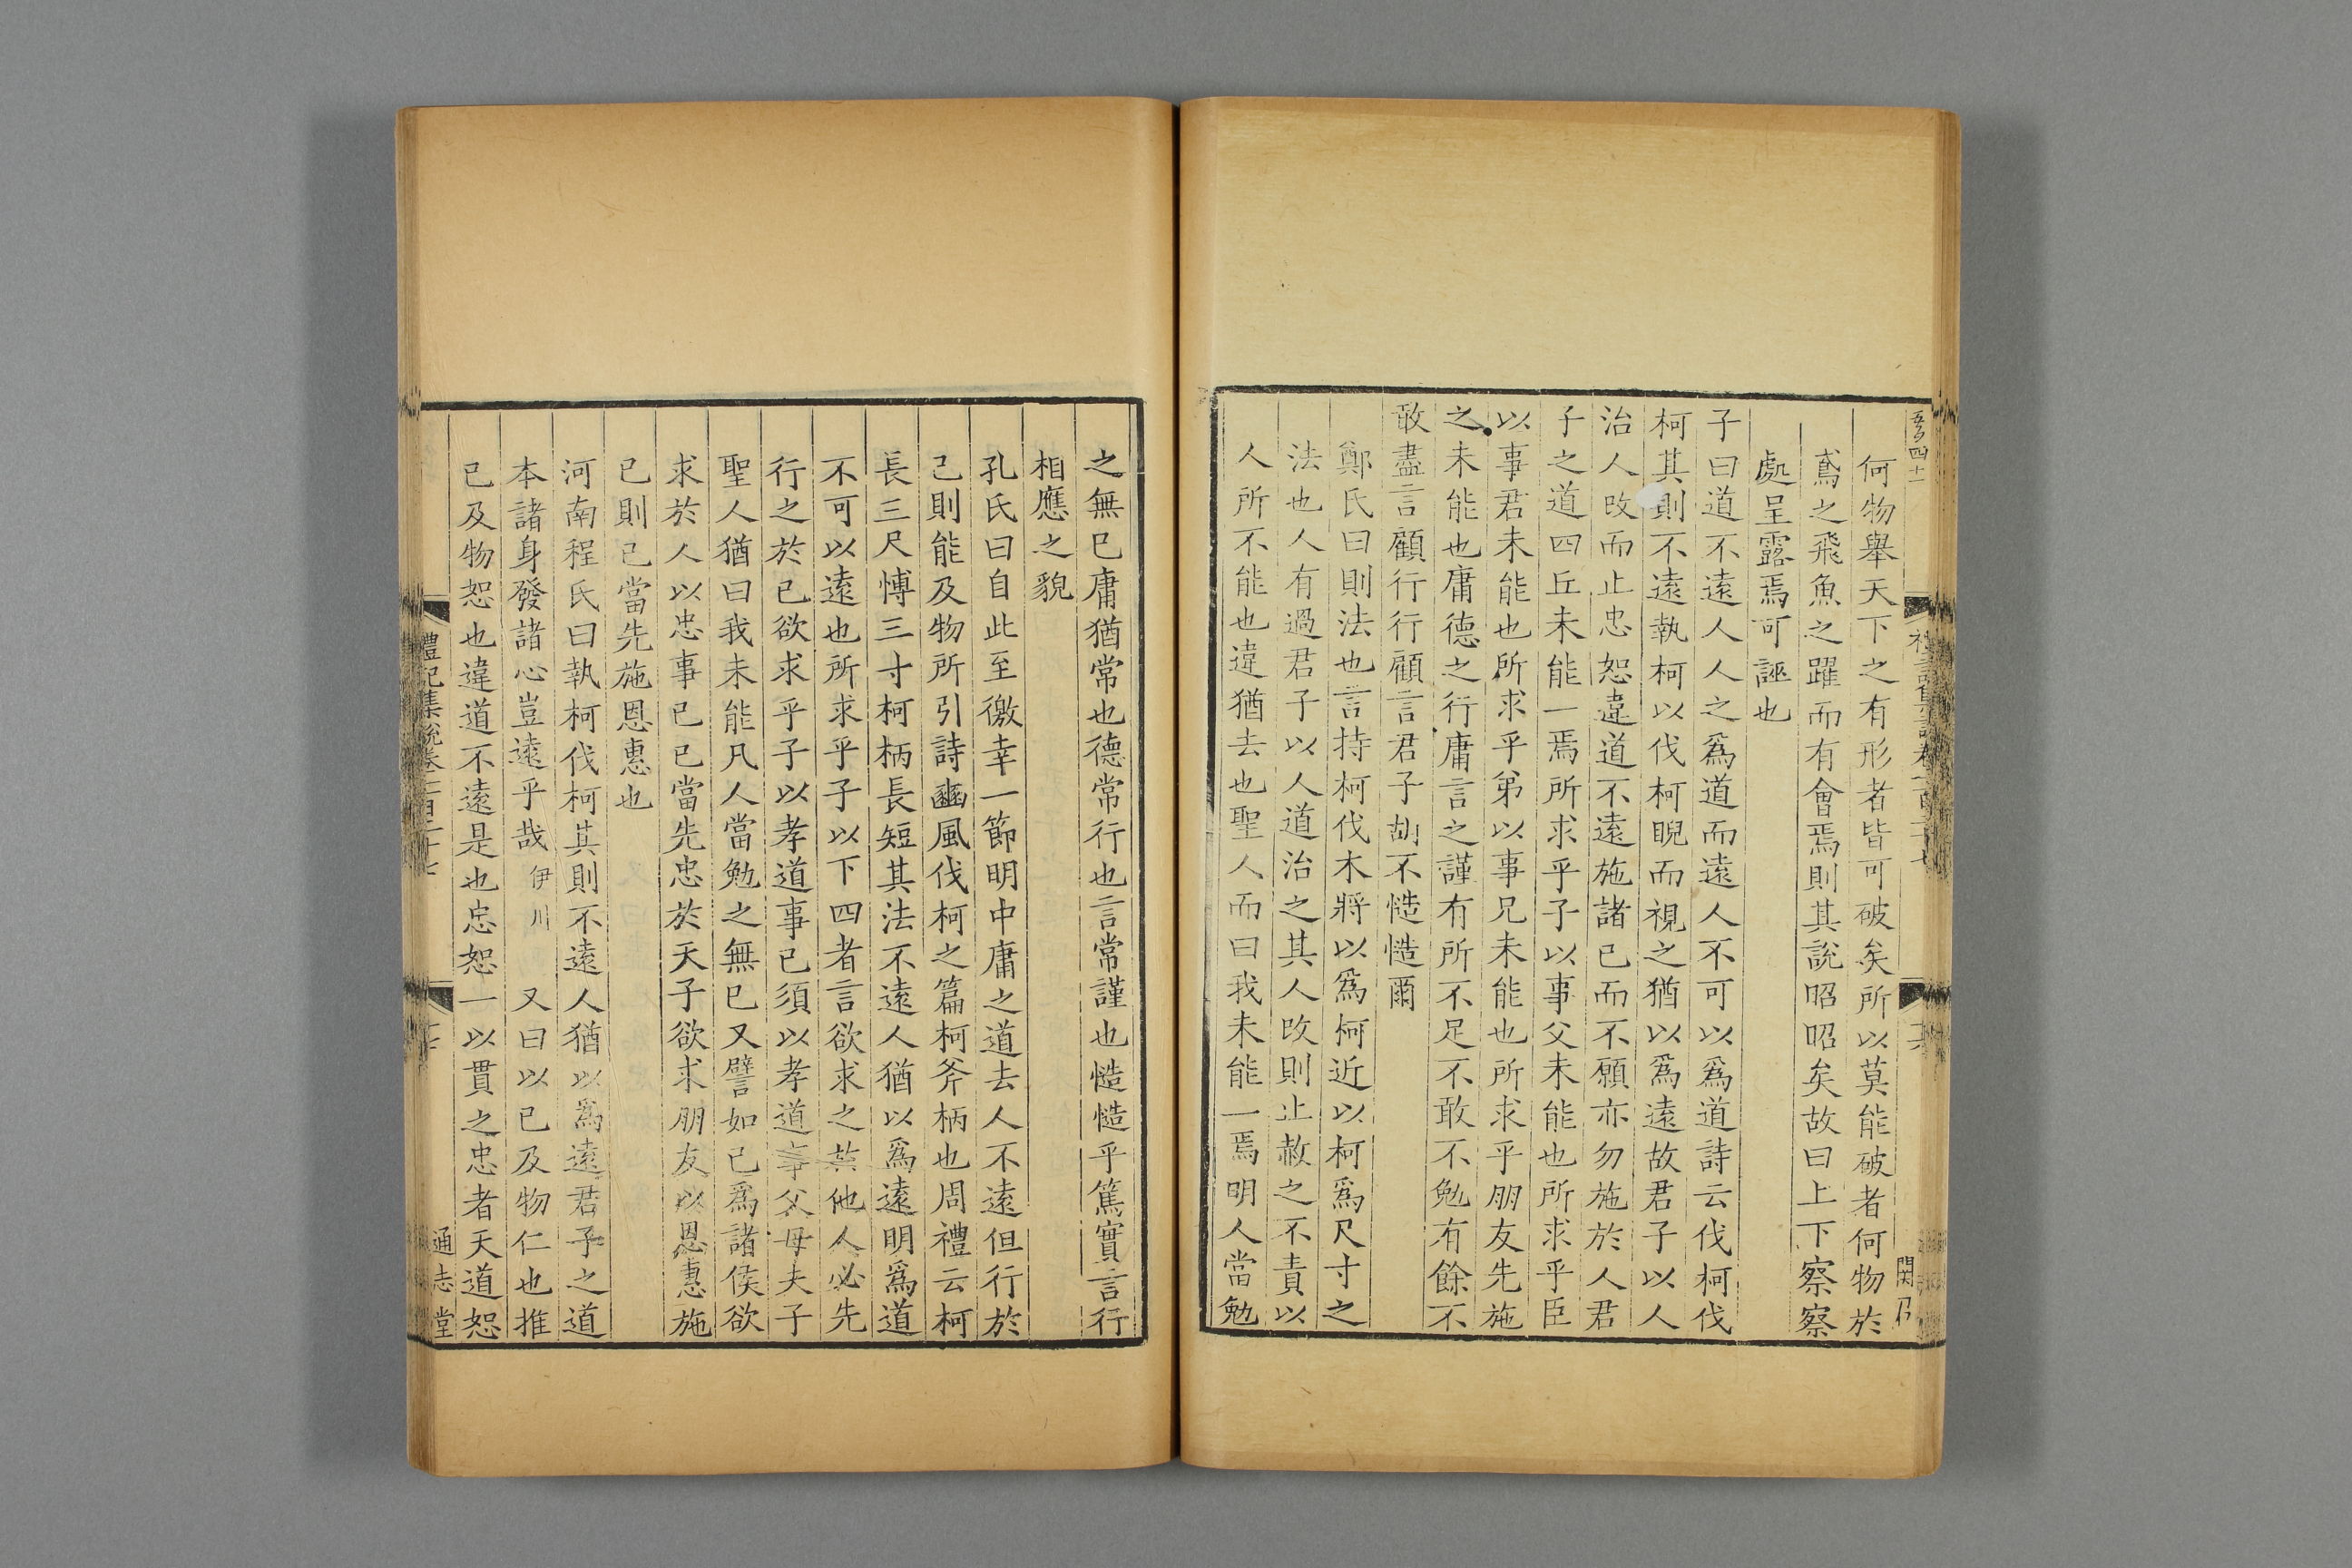 何物舉天下之有形者皆可破矣所以莫能破者何物於
鳶之飛魚之躍而有會焉則其說昭昭矣故曰上下察察
處呈露焉可誣也
子曰道不遠人人之爲道而遠人不可以爲道詩云伐柯伐
柯其則不遠執柯以伐柯睨而視之猶以爲遠故君子以人
治人改而止忠恕違道不遠施諸已而不願亦勿施於人君
子之道四丘未能一焉所求乎子以事父未能也所求乎臣
以事君未能也所求乎弟以事兄未能也所求乎朋友先施
之未能也庸德之行庸言之謹有所不足不敢不勉有餘不
敢盡言顧行行顧言君子胡不慥慥爾
鄭氏曰則法也言持柯伐木將以爲柯近以柯爲尺寸之
法也人有過君子以人道治之其人改則止赦之不責以
人所不能也違猶去也聖人而曰我未能一焉明人當勉
之無已庸猶常也德常行也言常謹也慥慥乎篤實言行
相應之貌
孔氏曰自此至徼幸一節明中庸之道去人不遠但行於
己則能及物所引詩豳風伐柯之篇柯斧柄也周禮云柯
長三尺博三寸柯柄長短其法不遠人猶以爲遠明爲道
不可以遠也所求乎子以下四者言欲求之其他人必先
行之於已欲求乎子以孝道事已須以孝道事父母夫子
聖人猶曰我未能凡人當勉之無已又譬如己爲諸侯欲
求於人以忠事已已當先忠於天子欲求朋友以恩惠施
已則已當先施恩惠也
河南程氏曰執柯伐柯其則不遠人猶以爲遠君子之道
本諸身發諸心豈遠乎哉伊川 又曰以已及物仁也推
已及物恕也違道不遠是也忠恕一以貫之忠者天道恕
禮記集說卷一百二十七
通志堂